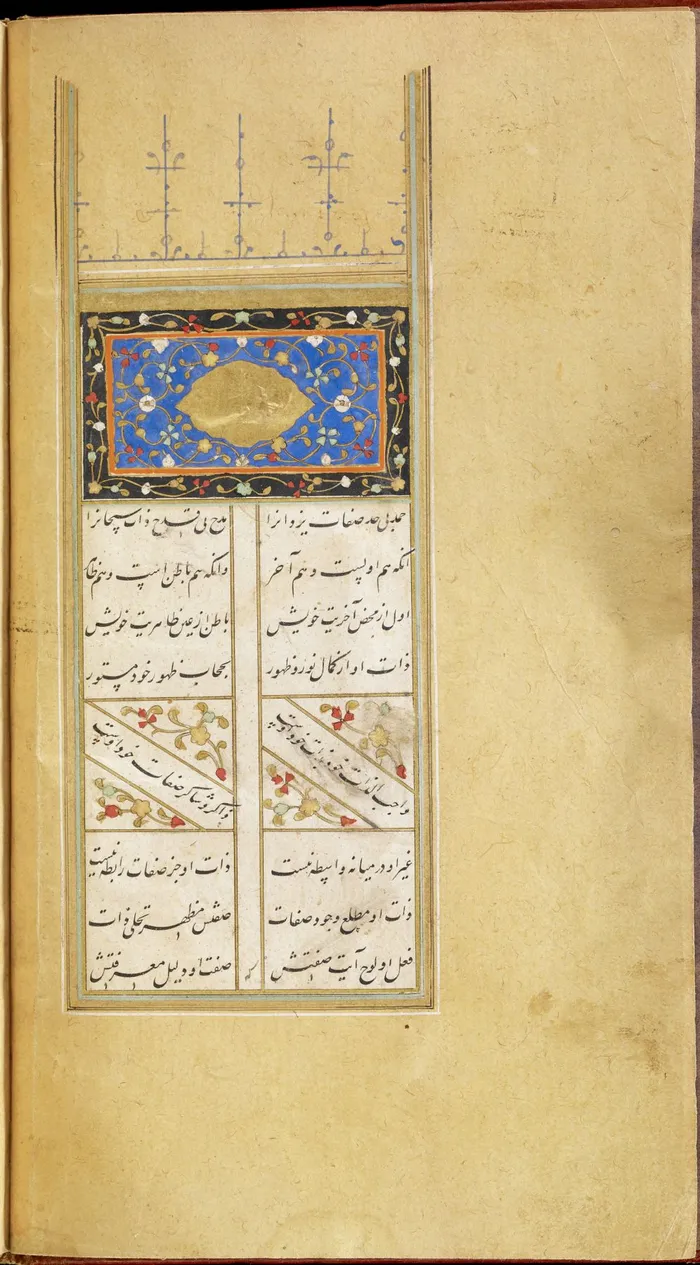 حمد بی حد صفات یزدانرا
مدح بی قدح ذات سبحانرا
آنکه هم اولست و هم آخر
وانکه هم باطن است و هم ظاهر
اول از محض آخریت خویش
باطن از عین ظاهریت خویش
ذات او از کمال نور و ظهور
بحجاب ظهور خود مستور
واجب الذات خود بذات خود اوست
ذاکر و شاکر صفات خود اوست
غیر او در میانه واسطه نیست
ذات او جز صفات رابطه نیست
ذات او مطلع وجود صفات
صفتش مظهر تجلی ذات
فعل او لوح آیت صفتش
صفت او دلیل معرفتش